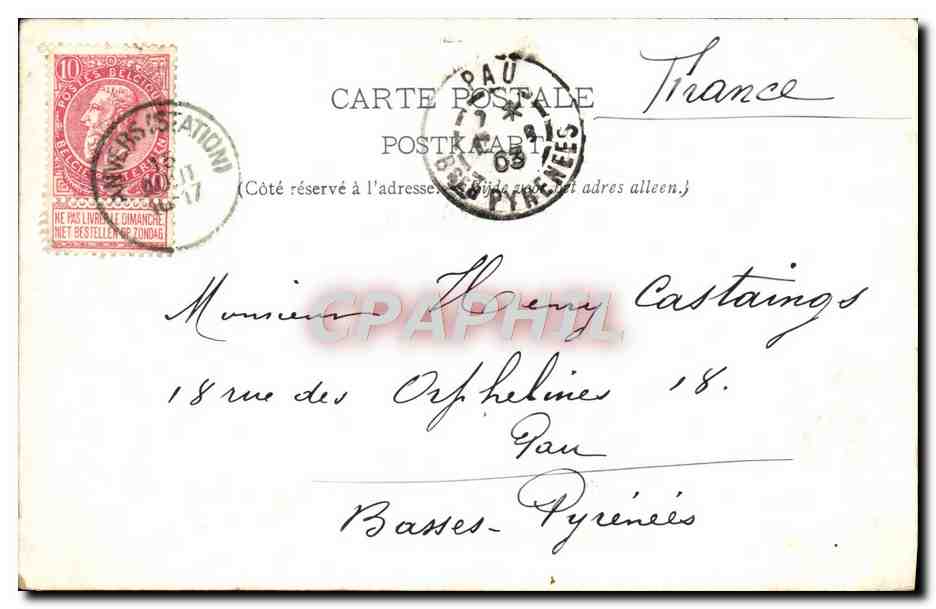 10
POSTES BELGIQUE
BELGIE
10
NE PAS LIVRER LE DIMANCHE
NIET BESTELLEN OP ZONDAG
ANVERS (STATION)
AOUT
16-17
PAU
03
BSES PYRENEES
France
CARTE POSTALE
POSTKAART
(Côté réservé à l'adresse. — Zijde voor het adres alleen.)
Monsieur Henry Castaings
18 rue des Orphelines 18.
Pau
Basses-Pyrénées
CPAPHIL